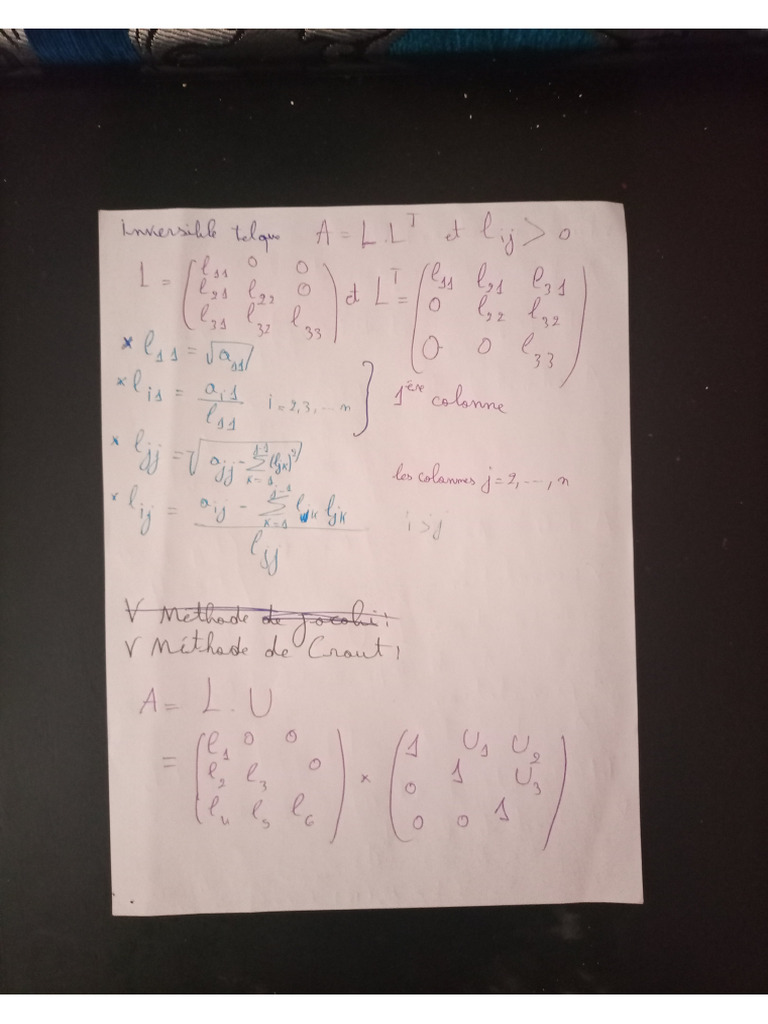 inversible telque A = L.Lᵀ et lij > 0
L = (l11 0 0 ; l21 l22 0 ; l31 l32 l33) et Lᵀ = (l11 l21 l31 ; 0 l22 l32 ; 0 0 l33)
* l11 = √a11
* li1 = ai1 / l11 i = 2, 3, ... n } 1ère colonne
* ljj = √(ajj - Σ_{k=1}^{j-1} (ljk)²)
les colonnes j = 2, ..., n
* lij = (aij - Σ_{k=1}^{j-1} lik ljk) / ljj i > j
V Methode de jacobi :
V Méthode de Crout :
A = L . U
= (l1 0 0 ; l2 l3 0 ; l4 l5 l6) × (1 U1 U2 ; 0 1 U3 ; 0 0 1)